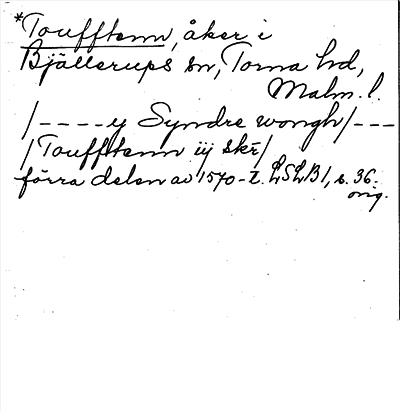 *Toufftenn, åker i
Bjällerups sn, Torna hd,
Malm. l.
/----y Syndre wongh/---
/Toufftenn iij skr/
förra delen av 1570-t. LSLB1, s. 36.
orig.